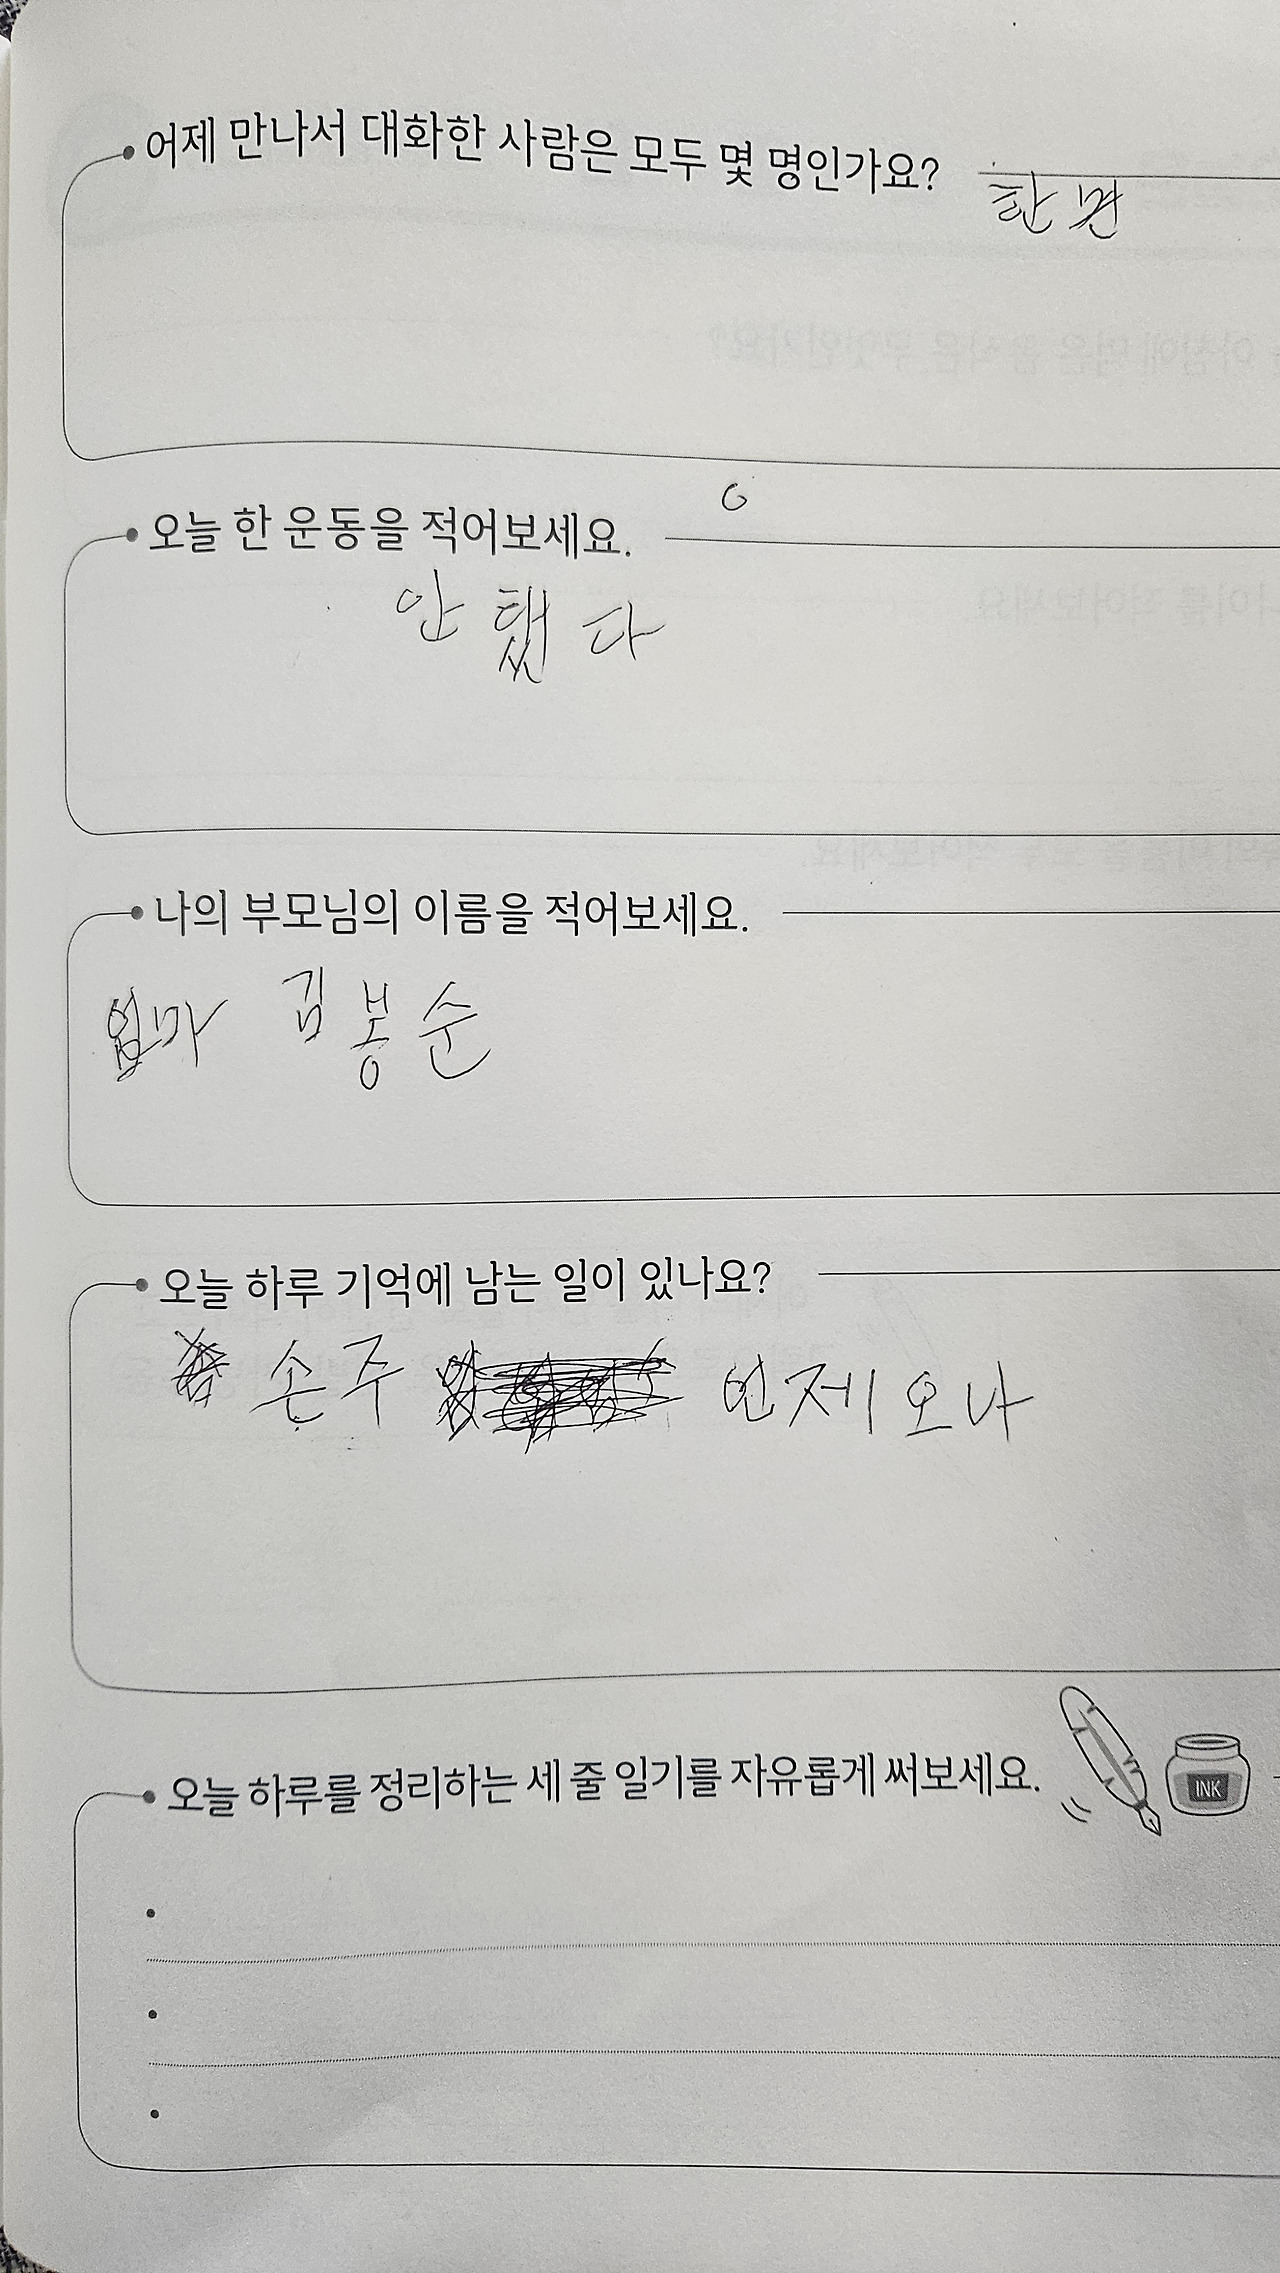 어제 만나서 대화한 사람은 모두 몇 명인가요?
한 면
오늘 한 운동을 적어보세요.
안 했 다
나의 부모님의 이름을 적어보세요.
엄마 김 봉 순
오늘 하루 기억에 남는 일이 있나요?
손 주 언 제 오 나
오늘 하루를 정리하는 세 줄 일기를 자유롭게 써보세요.
INK